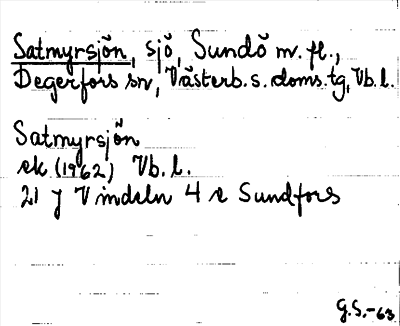 Satmyrsjön, sjö, Sundö m. fl.,
Degerfors sn, Västerb. s. doms. tg, Vb. l.
Satmyrsjön
ek (1962) Vb. l.
21 J Vindeln 4 e Sundfors
G.S.-63